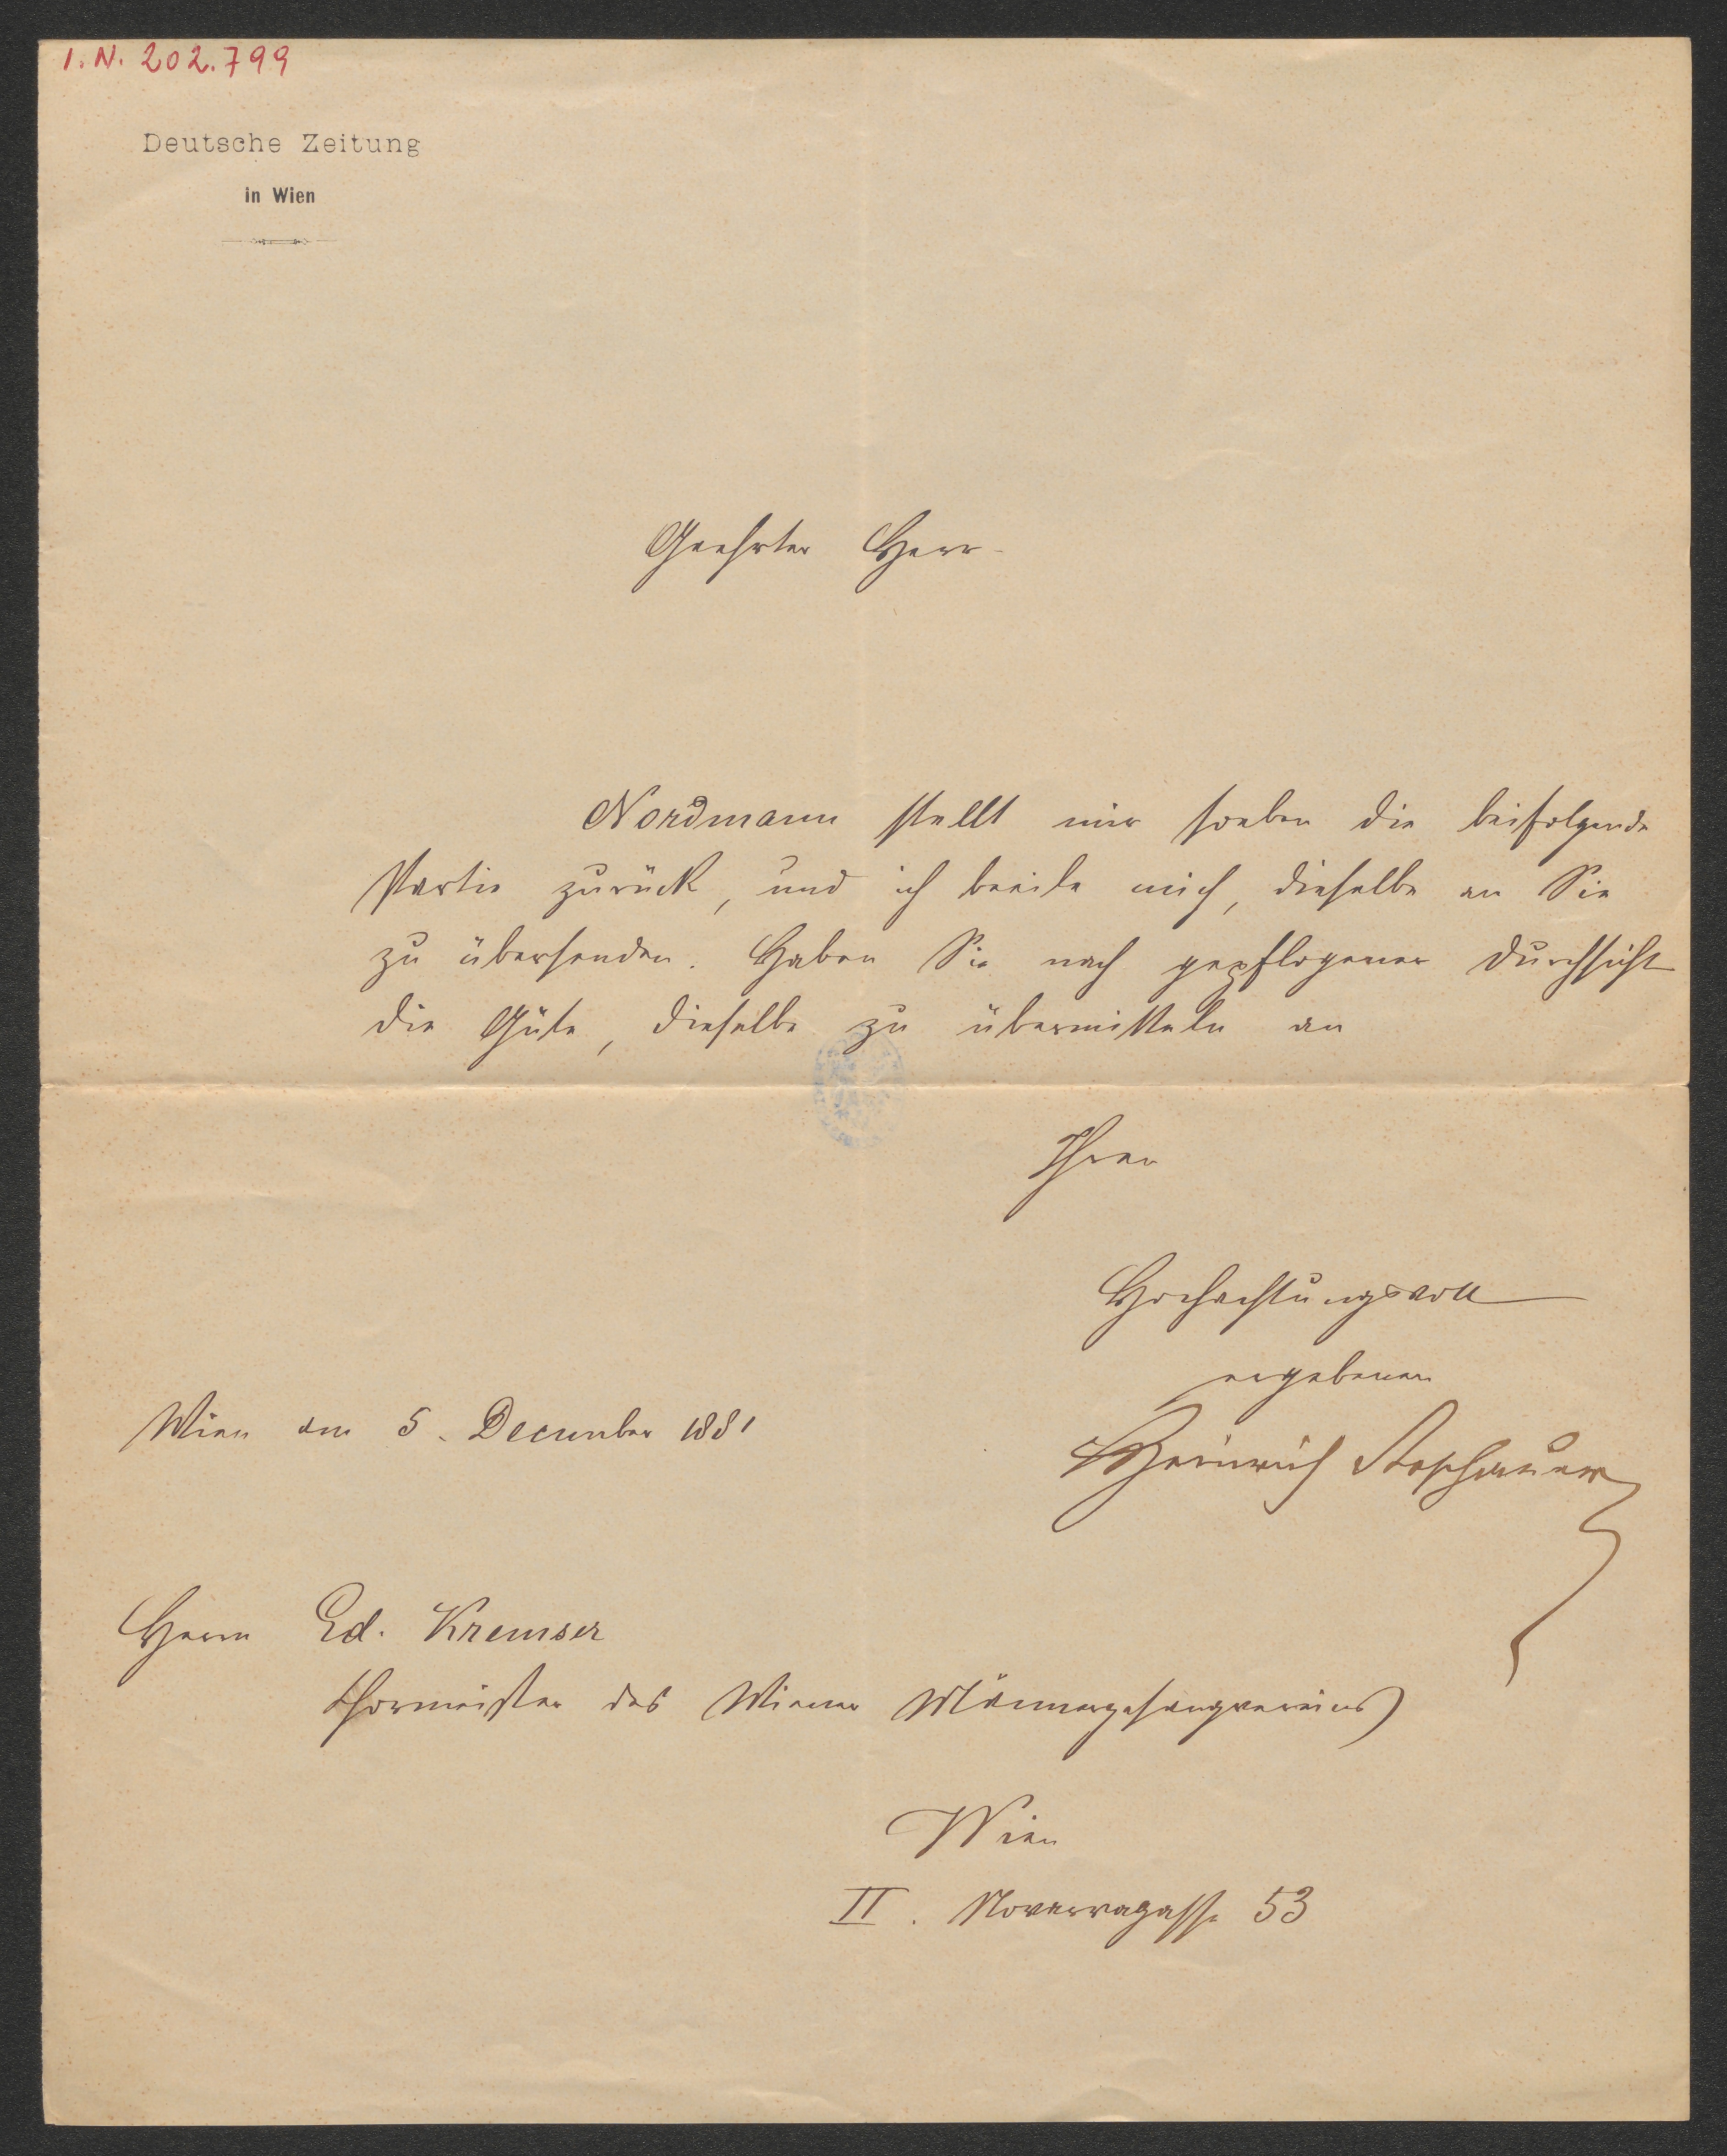 I. N. 202.799
Deutsche Zeitung
in Wien
Geehrter Herr
Nordmann stellt mir soeben die beifolgende
Partie zurück, und ich beeile mich, dieselbe an Sie
zu übersenden. Haben Sie nach gepflogener Durchsicht
die Güte, dieselbe zu übermitteln an
Ihren
Hochachtungsvoll
ergebenen
Wien am 5. December 1881
Heinrich
Herrn Ed. Kremser
Chormeister des Wiener Männergesangvereins
Wien
II. Novaragasse 53